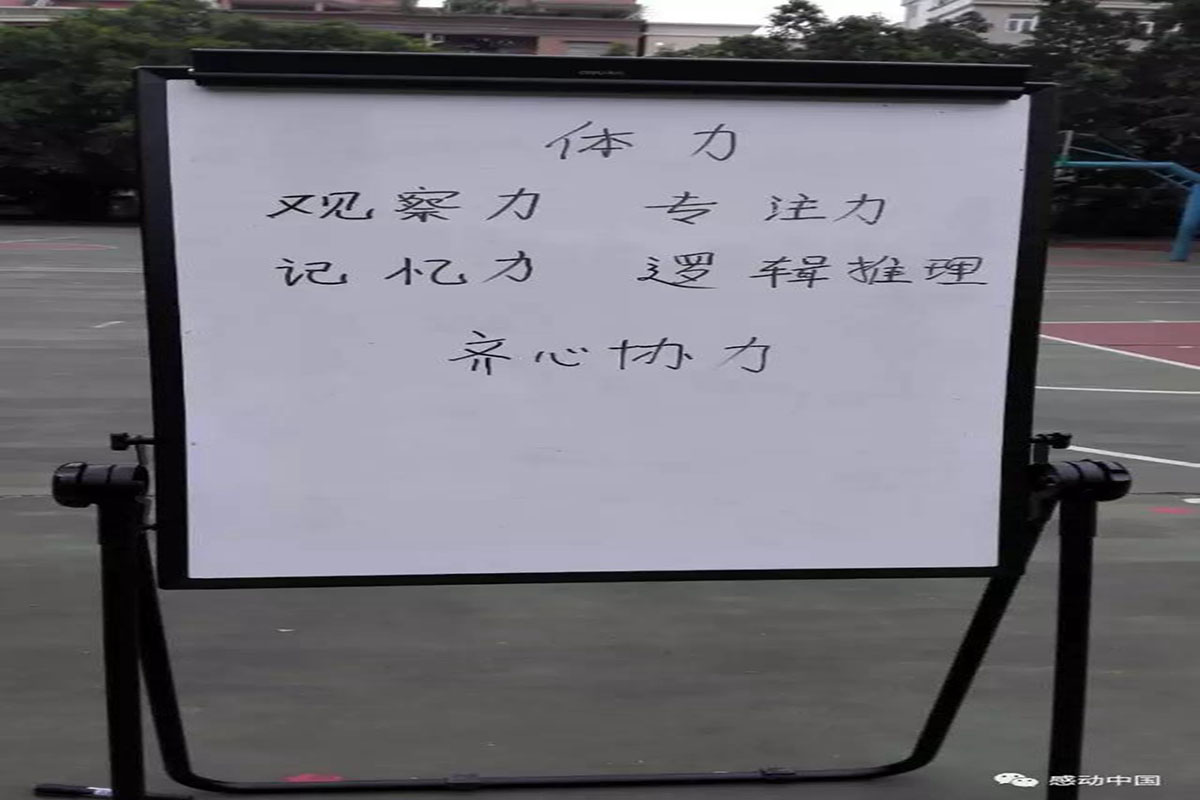 体力
观察力 专注力
记忆力 逻辑推理
齐心协力
感动中国